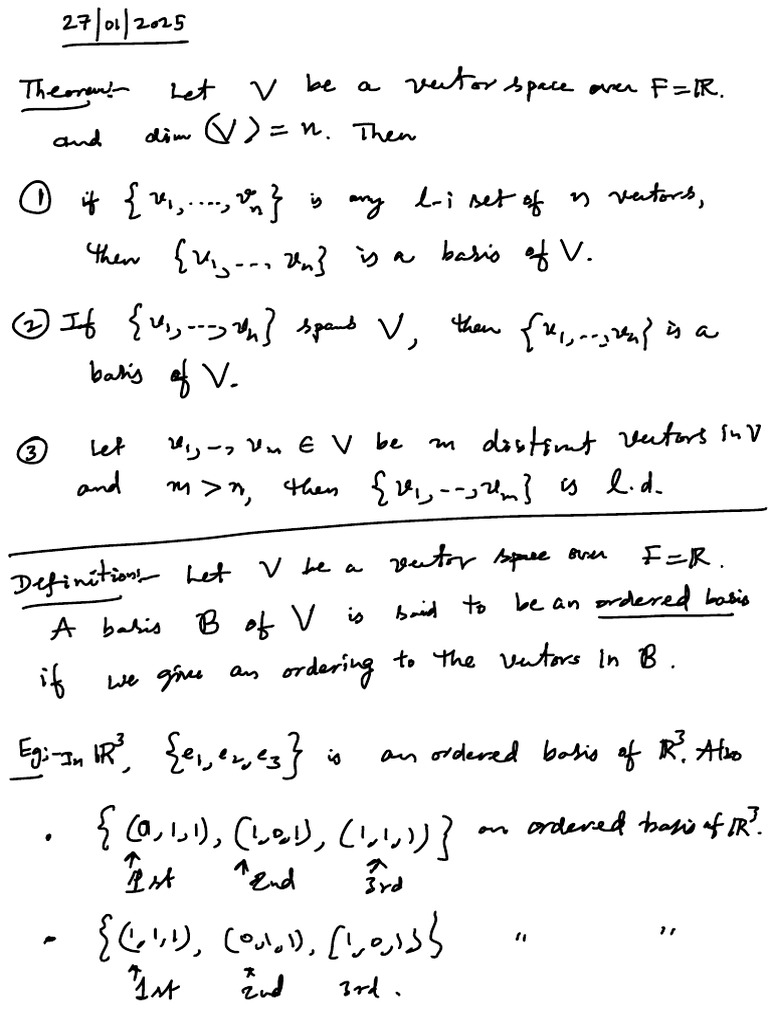 27/01/2025
Theorem:- Let V be a vector space over F=ℝ.
and dim(V)=n. Then
① if {v₁,....,vₙ} is any l-i set of n vectors,
then {v₁,..., vₙ} is a basis of V.
② If {v₁,---,vₙ} spans V, then {v₁,..,vₙ} is a
basis of V.
③ Let v₁,-, vₘ ∈ V be m distinct vectors in V
and m>n, then {v₁,--,vₘ} is l.d.
Definition:- Let V be a vector space over F=ℝ.
A basis B of V is said to be an ordered basis
if we give an ordering to the vectors in B.
Eg:- In ℝ³, {e₁,e₂,e₃} is an ordered basis of ℝ³. Also
• {(0,1,1), (1,0,1), (1,1,1)} an ordered basis of ℝ³.
↑ ↑ ↑
1st 2nd 3rd
• {(1,1,1), (0,1,1), (1,0,1)} " "
↑ ↑
1st 2nd 3rd.